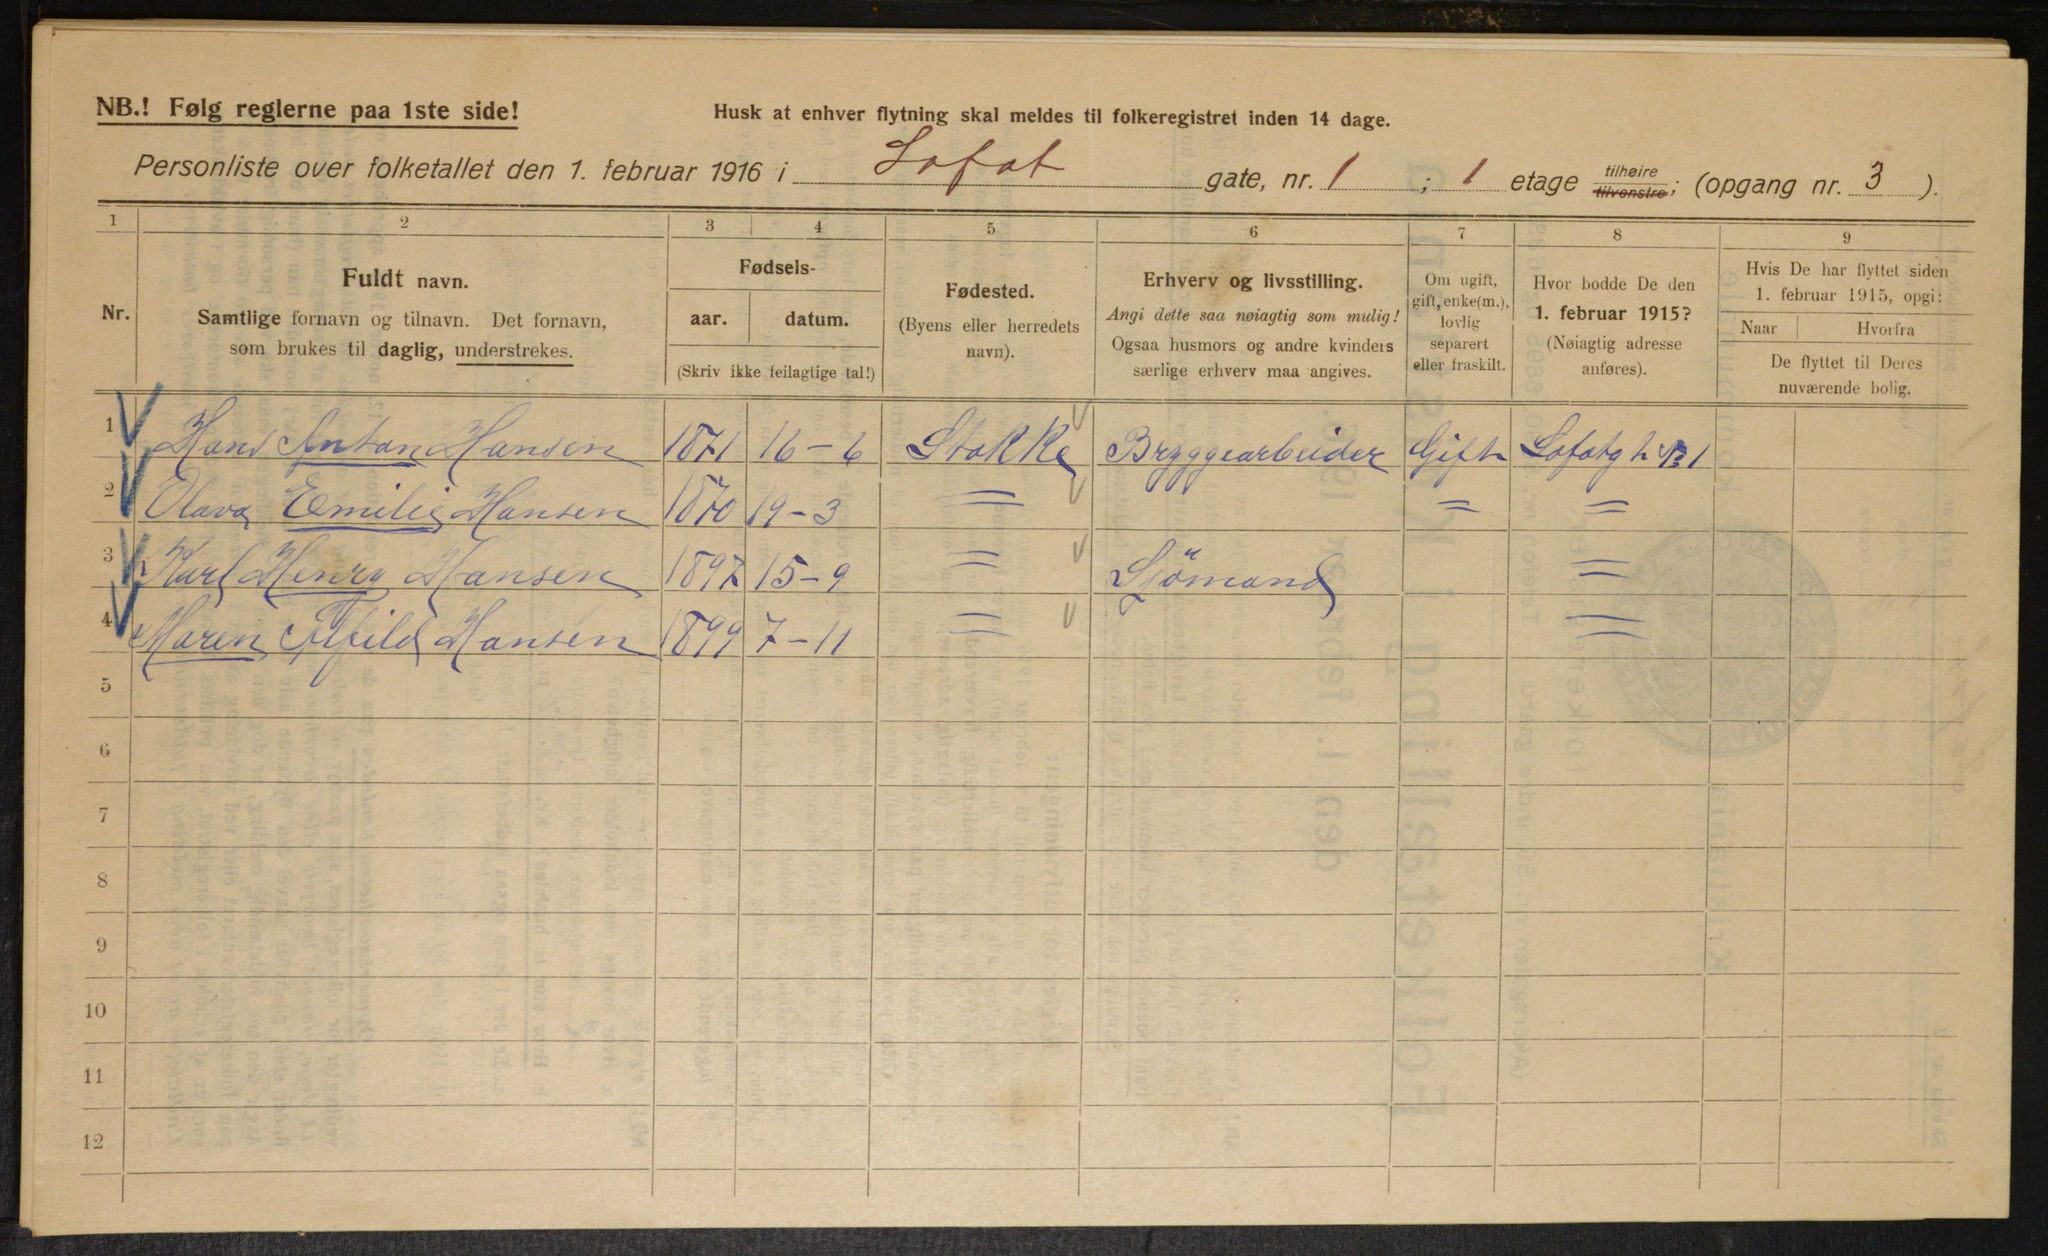 NB.! Følg reglerne paa 1ste side!
Husk at enhver flytning skal meldes til folkeregistret inden 14 dage.
Personliste over folketallet den 1. februar 1916 i Lofot gate, nr. 1 ; 1 etage tilhøire tilvenstre; (opgang nr. 3 ).
1 2 3 4 5 6 7 8 9
Nr.
Fuldt navn.
Samtlige fornavn og tilnavn. Det fornavn,
som brukes til daglig, understrekes.
Fødsels-
aar. datum.
(Skriv ikke feilagtige tal!)
Fødested.
(Byens eller herredets
navn).
Erhverv og livsstilling.
Angi dette saa nøiagtig som mulig!
Ogsaa husmors og andre kvinders
særlige erhverv maa angives.
Om ugift,
gift, enke(m.),
lovlig
separert
eller fraskilt.
Hvor bodde De den
1. februar 1915?
(Nøiagtig adresse
anføres).
Hvis De har flyttet siden
1. februar 1915, opgi:
Naar Hvorfra
De flyttet til Deres
nuværende bolig.
1 Hans Anton Hansen 1871 16-6 Stokke Bryggearbeider Gift Lofotgt No 1
2 Olava Emilie Hansen 1870 19-3 = = =
3 Karl Henry Hansen 1897 15-9 = Sjömand =
4 Maren Alfild Hansen 1899 7-11 = =
5
6
7
8
9
10
11
12